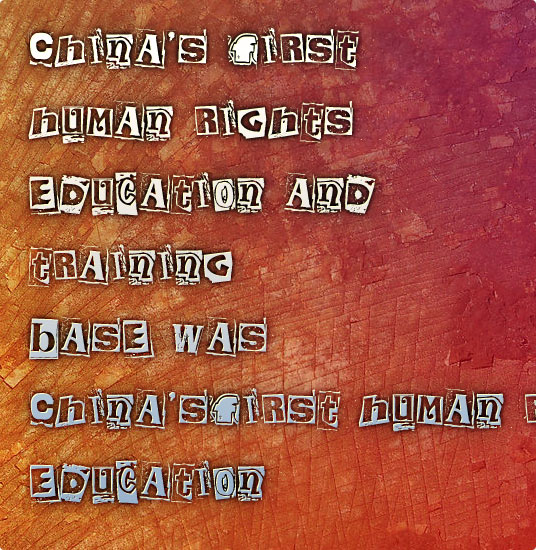 China's first
human rights
education and
training
base was
China'sfirst human
education